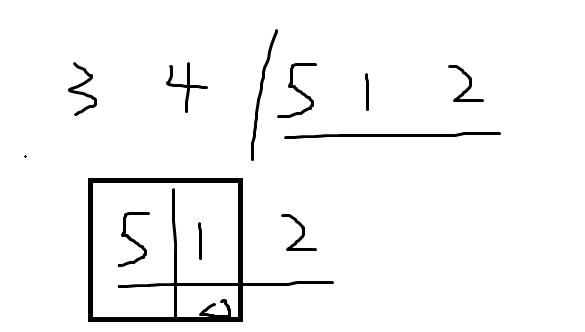 3 4 / 5 1 2
5 1 2